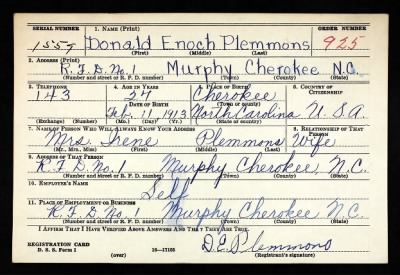 SERIAL NUMBER 1. NAME (Print) ORDER NUMBER
1557 Donald Enoch Plemmons 925
(First) (Middle) (Last)
2. ADDRESS (Print)
R.F.D. No. 1 Murphy Cherokee N.C.
(Number and street or R. F. D. number) (Town) (County) (State)
3. TELEPHONE 4. AGE IN YEARS 5. PLACE OF BIRTH 6. COUNTRY OF CITIZENSHIP
143 27 Cherokee
DATE OF BIRTH (Town or county)
Feb. 1 1913 North Carolina U.S.A.
(Exchange) (Number) (Mo.) (Day) (Yr.) (State or country)
7. NAME OF PERSON WHO WILL ALWAYS KNOW YOUR ADDRESS 8. RELATIONSHIP OF THAT PERSON
Mrs. Irene Plemmons Wife
(Mr., Mrs., Miss) (First) (Middle) (Last)
9. ADDRESS OF THAT PERSON
R.F.D. No. 1 Murphy Cherokee, N.C.
(Number and street or R. F. D. number) (Town) (County) (State)
10. EMPLOYER'S NAME
Self
11. PLACE OF EMPLOYMENT OR BUSINESS
R.F.D. No. Murphy Cherokee N.C.
(Number and street or R. F. D. number) (Town) (County) (State)
I AFFIRM THAT I HAVE VERIFIED ABOVE ANSWERS AND THAT THEY ARE TRUE.
REGISTRATION CARD
D. S. S. Form 1 16-17105 D.E. Plemmons
(over) (Registrant's signature)